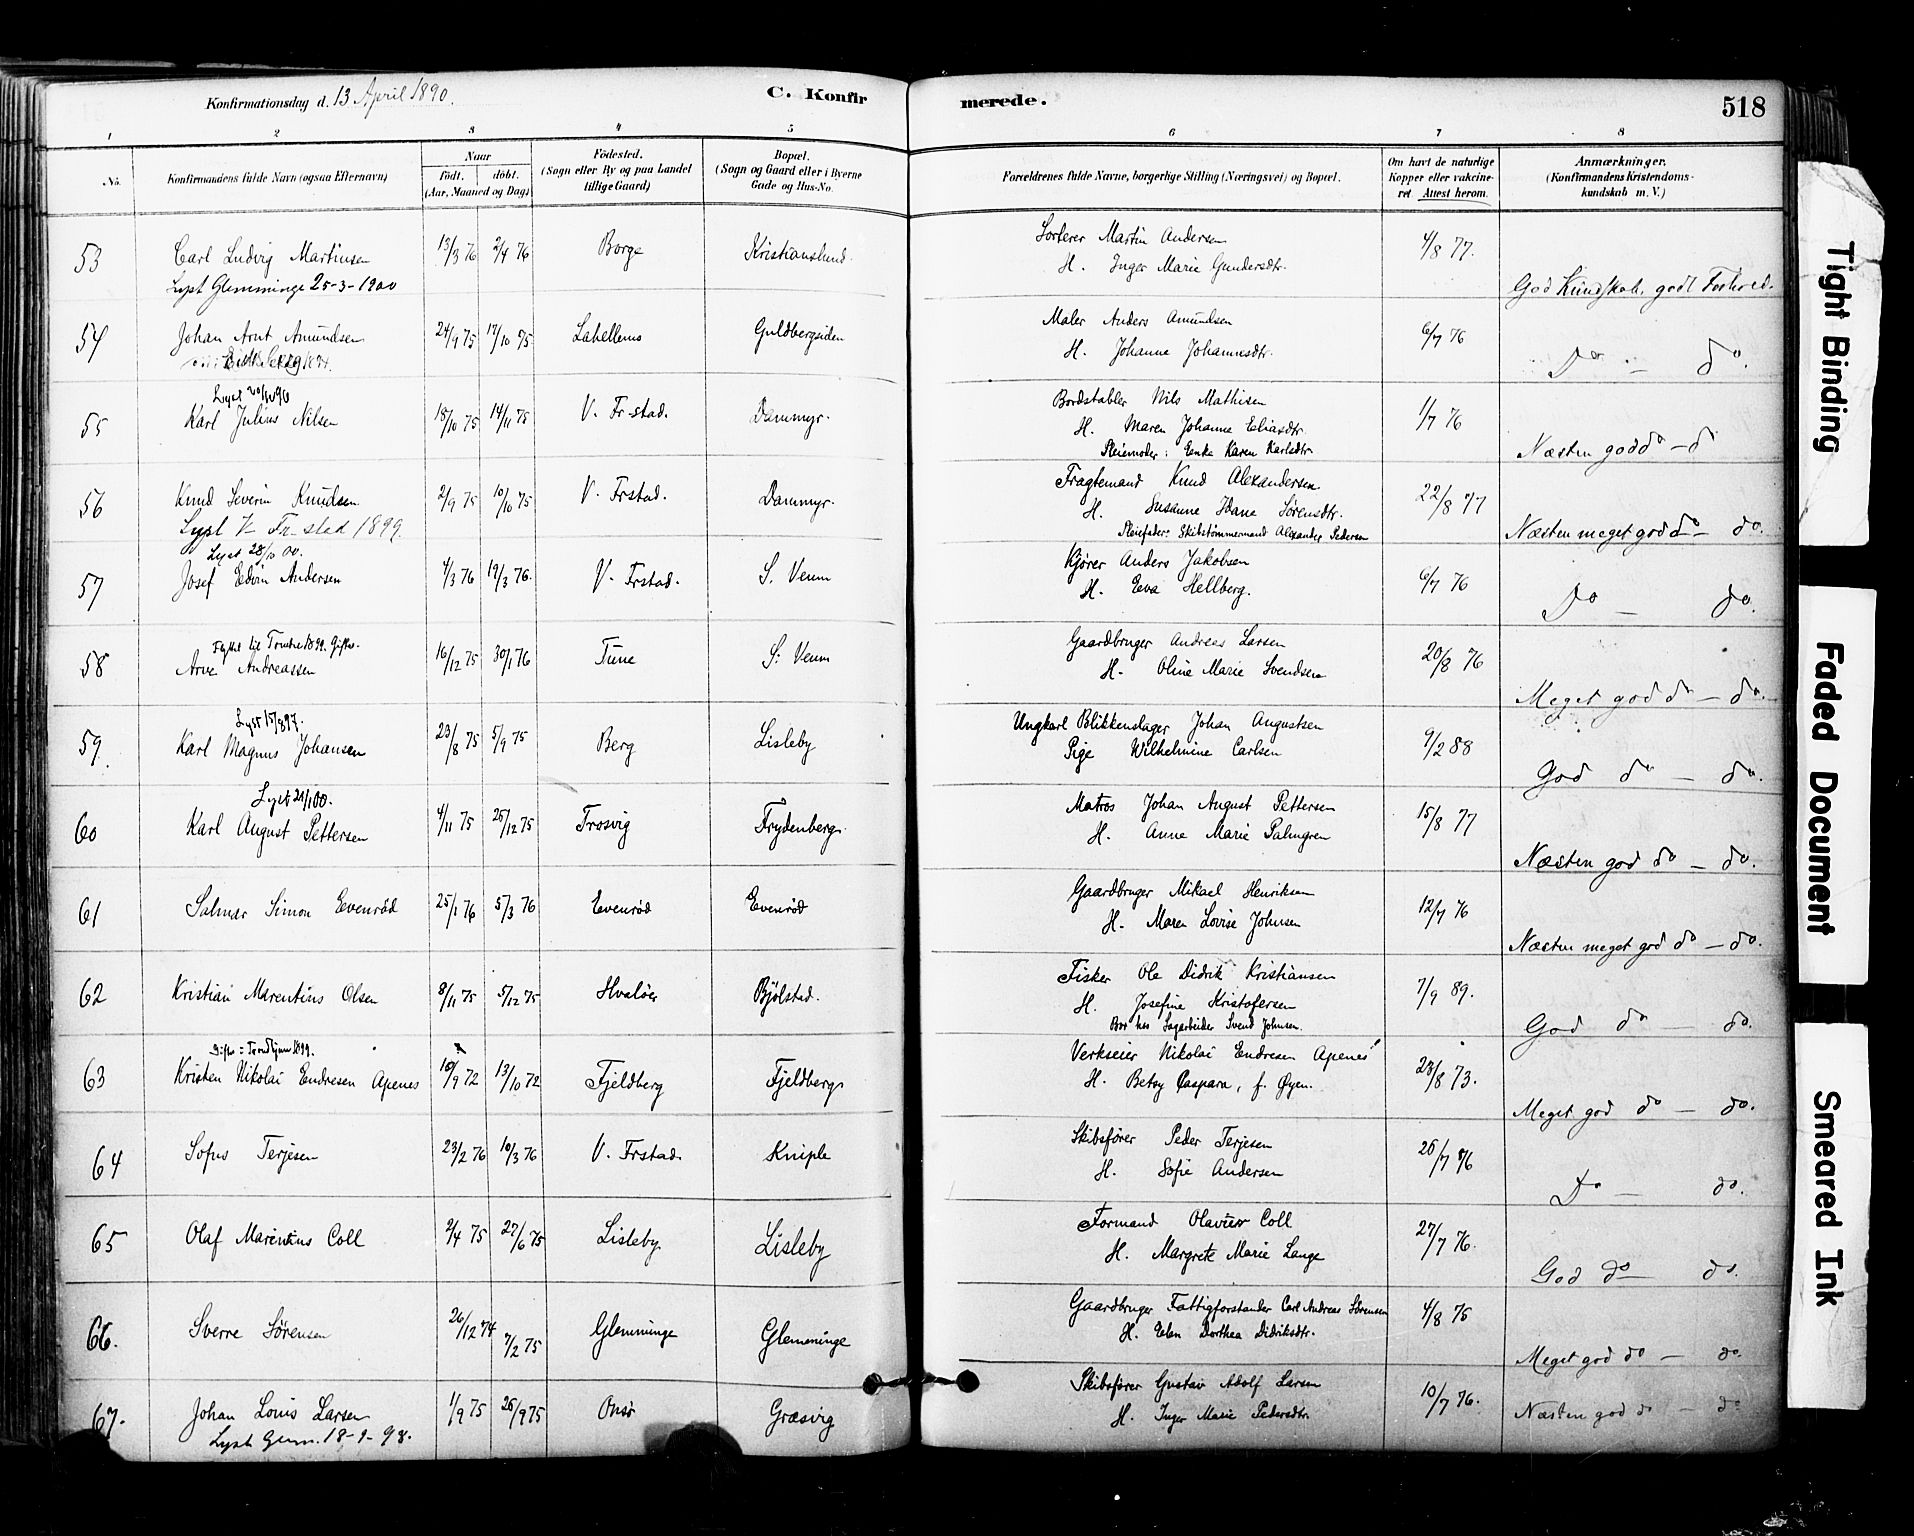 Konfirmationsdag d. 13 April 1890.
C. Konfirmerede.
518
1 2 3 4 5 6 7 8
No.
Konfirmandens fulde Navn (ogsaa Efternavn)
Naar
födt. döbt.
(Aar, Maaned og Dag)
Födested.
(Sogn eller By og paa Landet
tillige Gaard)
Bopæl.
(Sogn og Gaard eller i Byerne
Gade og Hus-No.
Forældrenes fulde Navne, borgerlige Stilling (Næringsvei) og Bopæl.
Om havt de naturlige
Kopper eller vakcine-
ret Attest herom.
Anmærkninger.
(Konfirmandens Kristendoms-
kundskab m. V.)
53 Carl Ludvig Martinsen 13/3 76 2/4 76 Borge Kristianslund. Sorterer Martin Andersen 4/8 77.
Lyst Glemminge 25-3-1900 H. Inger Marie Gundersdtr. God Kundskab, godt Forhold.
54 Johan Arnt Amundsen 24/9 75 17/10 75 Lahellems Guldbergsiden Maler Anders Amundsen 6/7 76
H. Johanne Johannesdtr. Do do.
Lyst 20/10 96
55 Karl Julius Nilsen 15/10 75 14/11 75 V. Fr-stad. Dammyr. Bordstabler Nils Mathisen 1/7 76
H. Maren Johanne Eliasdtr.
Pleiemoder: Enke Karen Karlsdtr. Næsten god do - d
56 Knud Severin Knudsen 2/9 75 10/10 75 V. Frstad. Dammyr. Fragtemand Knud Alexandersen 22/8 77
Lyst V Fr_stad 1899. H. Susanne Idane Sørensdtr.
Pleiefader: Skibstømmermand Alexander Pedersen Næsten meget god do - do.
Lyst 28/10 00.
57 Josef Edvin Andersen 4/3 76 19/3 76. V. Frstad. S. Veum Kjører Anders Jakobsen 6/7 76
H. Eva Hellberg. Do - do.
Flyttet til Tromsø 1899. Giftes.
58 Arve Andreassen 16/12 75 30/1 76 Tune S. Veum Gaardbruger Andreas Larsen 20/8 76
H. Oline Marie Svendsen Meget god do - do.
Lyst 15/8 97.
59 Karl Magnus Johansen 23/8 75 5/9 75 Berg Lisleby Ungkarl Blikkenslager Johan Augustsen 9/2 88
Pige Wilhelmine Carlsen God do - do.
60 Karl August Pettersen 4/11 75 25/12 75 Trosvig Frydenberg. Matros Johan August Pettersen 15/8 77
H. Anne Marie Palmgren Næsten god do - do.
61 Salmer Simon Evenröd 25/1 76 5/3 76 Evenröd Evenröd Gaardbruger Mikael Henriksen 12/7 76
H. Maren Lovise Johnsen Næsten meget god do - do.
62 Kristian Marentius Olsen 8/11 75 5/12 75 Hvaløer Bjölstad. Fisker Ole Didrik Kristiansen 7/9 89.
H. Josefine Kristofersen
Bor hos Sagarbeider Svend Johnsen. God do - do.
63 Kristen Nikolai Endresen Apenes 10/9 72 13/10 72 Fjeldberg Fjeldberg Verkseier Nikolai Endresen Apenes 23/8 73.
H. Betsy Caspara, f. Øyen. Meget god do - do.
64 Sofus Terjesen 23/2 76 19/3 76 V. Frstad. Kniple Skibsfører Peder Terjesen 26/7 76
H. Sofie Andersen Do - do.
65 Olaf Marentius Coll 2/4 75 27/6 75 Lisleby Lisleby Formand Olavus Coll 27/7 76.
H. Margrete Marie Lange God do - do.
66. Sverre Sörensen 26/12 74 7/2 75 Glemminge Glemminge Gaardbruger Fattigforstander Carl Andreas Sörensen 4/8 75
H. Elen Dorthea Didriksdtr. Meget god do - do.
67. Johan Louis Larsen 1/9 75 26/9 75 Onsö Græsvig Skibsfører Gustav Adolf Larsen 10/7 76.
Lyst Glem. 18-9-98. H. Inger Marie Pedersdtr. Næsten god do - do
Tight Binding
Faded Document
Smeared Ink